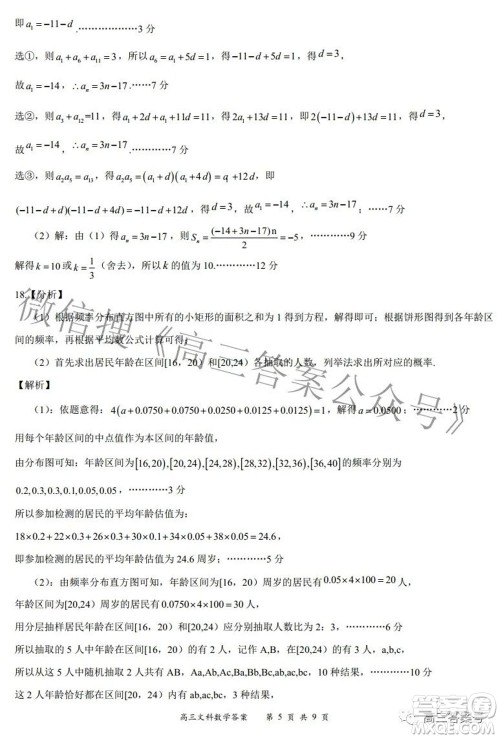 即 a₁ = −11 − d …………………3 分
选①，则 a₁ + a₆ + a₁₁ = 3，所以 a₆ = a₁ + 5d = 1，得 −11 − d + 5d = 1，得 d = 3，
故 a₁ = −14，∴ aₙ = 3n − 17.……7 分
选②，则 a₃ + a₁₂=11，得 a₁ + 2d + a₁ + 11d = 11，得 2a₁ + 13d = 11，即 2(−11 − d) + 13d = 11，得 d = 3，
故 a₁ = −14，∴ aₙ = 3n − 17.……7 分
选③，则 a₂a₅ = a₁₃，得 a₂a₅ = (a₁ + d)(a₁ + 4d) = a₁ + 12d，即
(−11 − d + d)(−11 − d + 4d) = −11 − d + 12d，得 d = 3，故 a₁ = −14，∴ aₙ = 3n − 17；……7 分
（2）解：由（1）得 aₙ = 3n − 17，则 Sₙ = (−14 + 3n − 17)n / 2 = −5，…………9 分
解得 k = 10 或 k = 1/3（舍去），所以 k 的值为 10.…………12 分
18.【分析】
（1）根据频率分布直方图中所有的小矩形的面积之和为 1 得到方程，解得即可；根据饼形图得到各年龄区
间的频率，再根据平均数公式计算可得；
（2）首先求出居民年龄在[16，20）和[20,24）各抽取的人数，列举法求出所对应的概率.
【解析】
（1）：依题意得：4(a + 0.0750 + 0.0750 + 0.0250 + 0.0125 + 0.0125) = 1，解得 a = 0.0500；…………2 分
用每个年龄区间的中点值作为本区间的年龄值，
由分布图可知：年龄区间为 [16,20),[20,24),[24,28),[28,32),[32,36),[36,40] 的频率分别为
0.2,0.3,0.3,0.1,0.05,0.05，…………3 分
所以参加检测的居民的平均年龄估值为：
18×0.2 + 22×0.3 + 26×0.3 + 30×0.1 + 34×0.05 + 38×0.05 = 24.6，
即参加检测的居民的平均年龄估值为 24.6 周岁；…………5 分
（2）：由频率分布直方图可知：年龄区间为[16，20）有 0.05×4×100 = 20 人，
年龄区间为[20,24）周岁有 0.0750×4×100 = 30 人，
用分层抽样年龄区间在[16，20）和[20,24）应分别抽取人数比为 2：3，…………6 分
所以抽取的 5 人中年龄在[16，20）的有 2 人，记作 A,B，在[20,24）有 3 人，记作 a,b,c，
所以从这 5 人中随机抽取 2 人共有 AB，Aa,Ab,Ac,Ba,Bb,Bc,ab,ac,bc，10 种结果，……10 分
这 2 人年龄恰好都在[20,24）内有 ab,ac,bc，3 种结果，
高三文科数学答案 第 5 页 共 9 页
微信搜《高三答案公众号》
高三答案号
答案圈